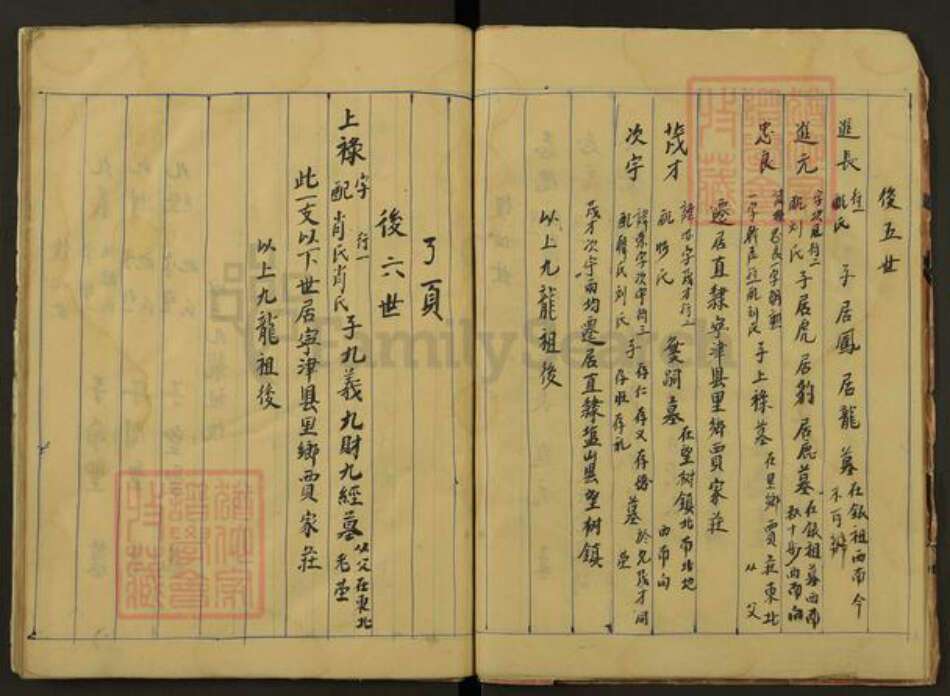 後五世
進長 行一 配氏 子居鳳 居龍 墓在銀祖西南今不可辨
進元 字次辰行二 配刘氏 子居虎 居豹 居鹿 墓在銀祖墓西南数十步西南向
忠良 一字 行一 配刘氏 子上祿 墓在里鄉賈莊東北 从父
遷居直隸寧津县里鄉賈家莊
茂才 字茂才行二 配 氏 無嗣 墓在望树鎮北南北地 西南向
次宇 字次宇行三 配 氏刘氏 子存仁 存义 存 存礼 墓於兄茂才同 茔
茂才次宇而均遷居直隸塩山县望树鎮
以上九龍祖後
了頁
後六世
上祿 字 行一 配肖氏肖氏 子九義 九財 九經 墓从父在東北老茔
此一支以下世居寧津县里鄉賈家莊
以上九龍祖後
FamilySearch